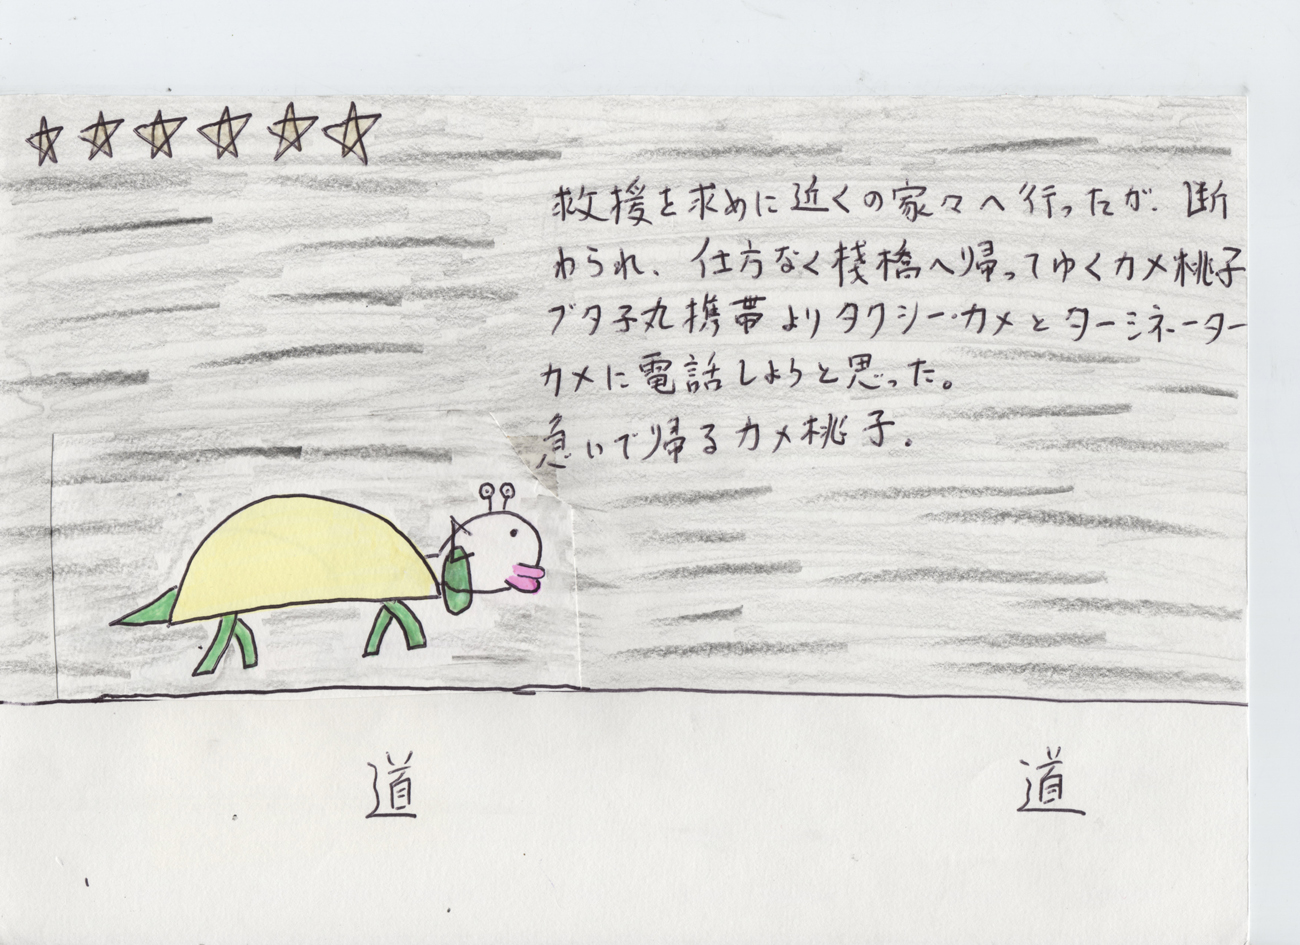 救援を求めに近くの家々へ行ったが、断
わられ、仕方なく棧橋へ帰ってゆくカメ桃子
ブタ子丸携帯よりタクシー・カメとターミネーター
カメに電話しようと思った。
急いで帰るカメ桃子。
道 道